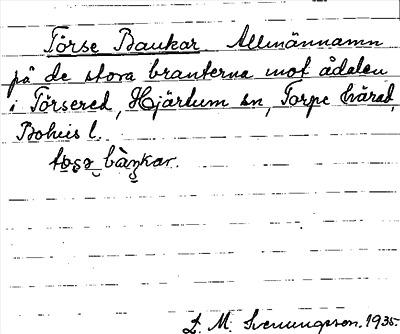 Törse Bankar Allmännamn
på de stora branterna mot ådalen
i Törsered, Hjärtum sn, Torpe härad,
Bohus l.
bankar.
L. M. Svenungsson. 1935.